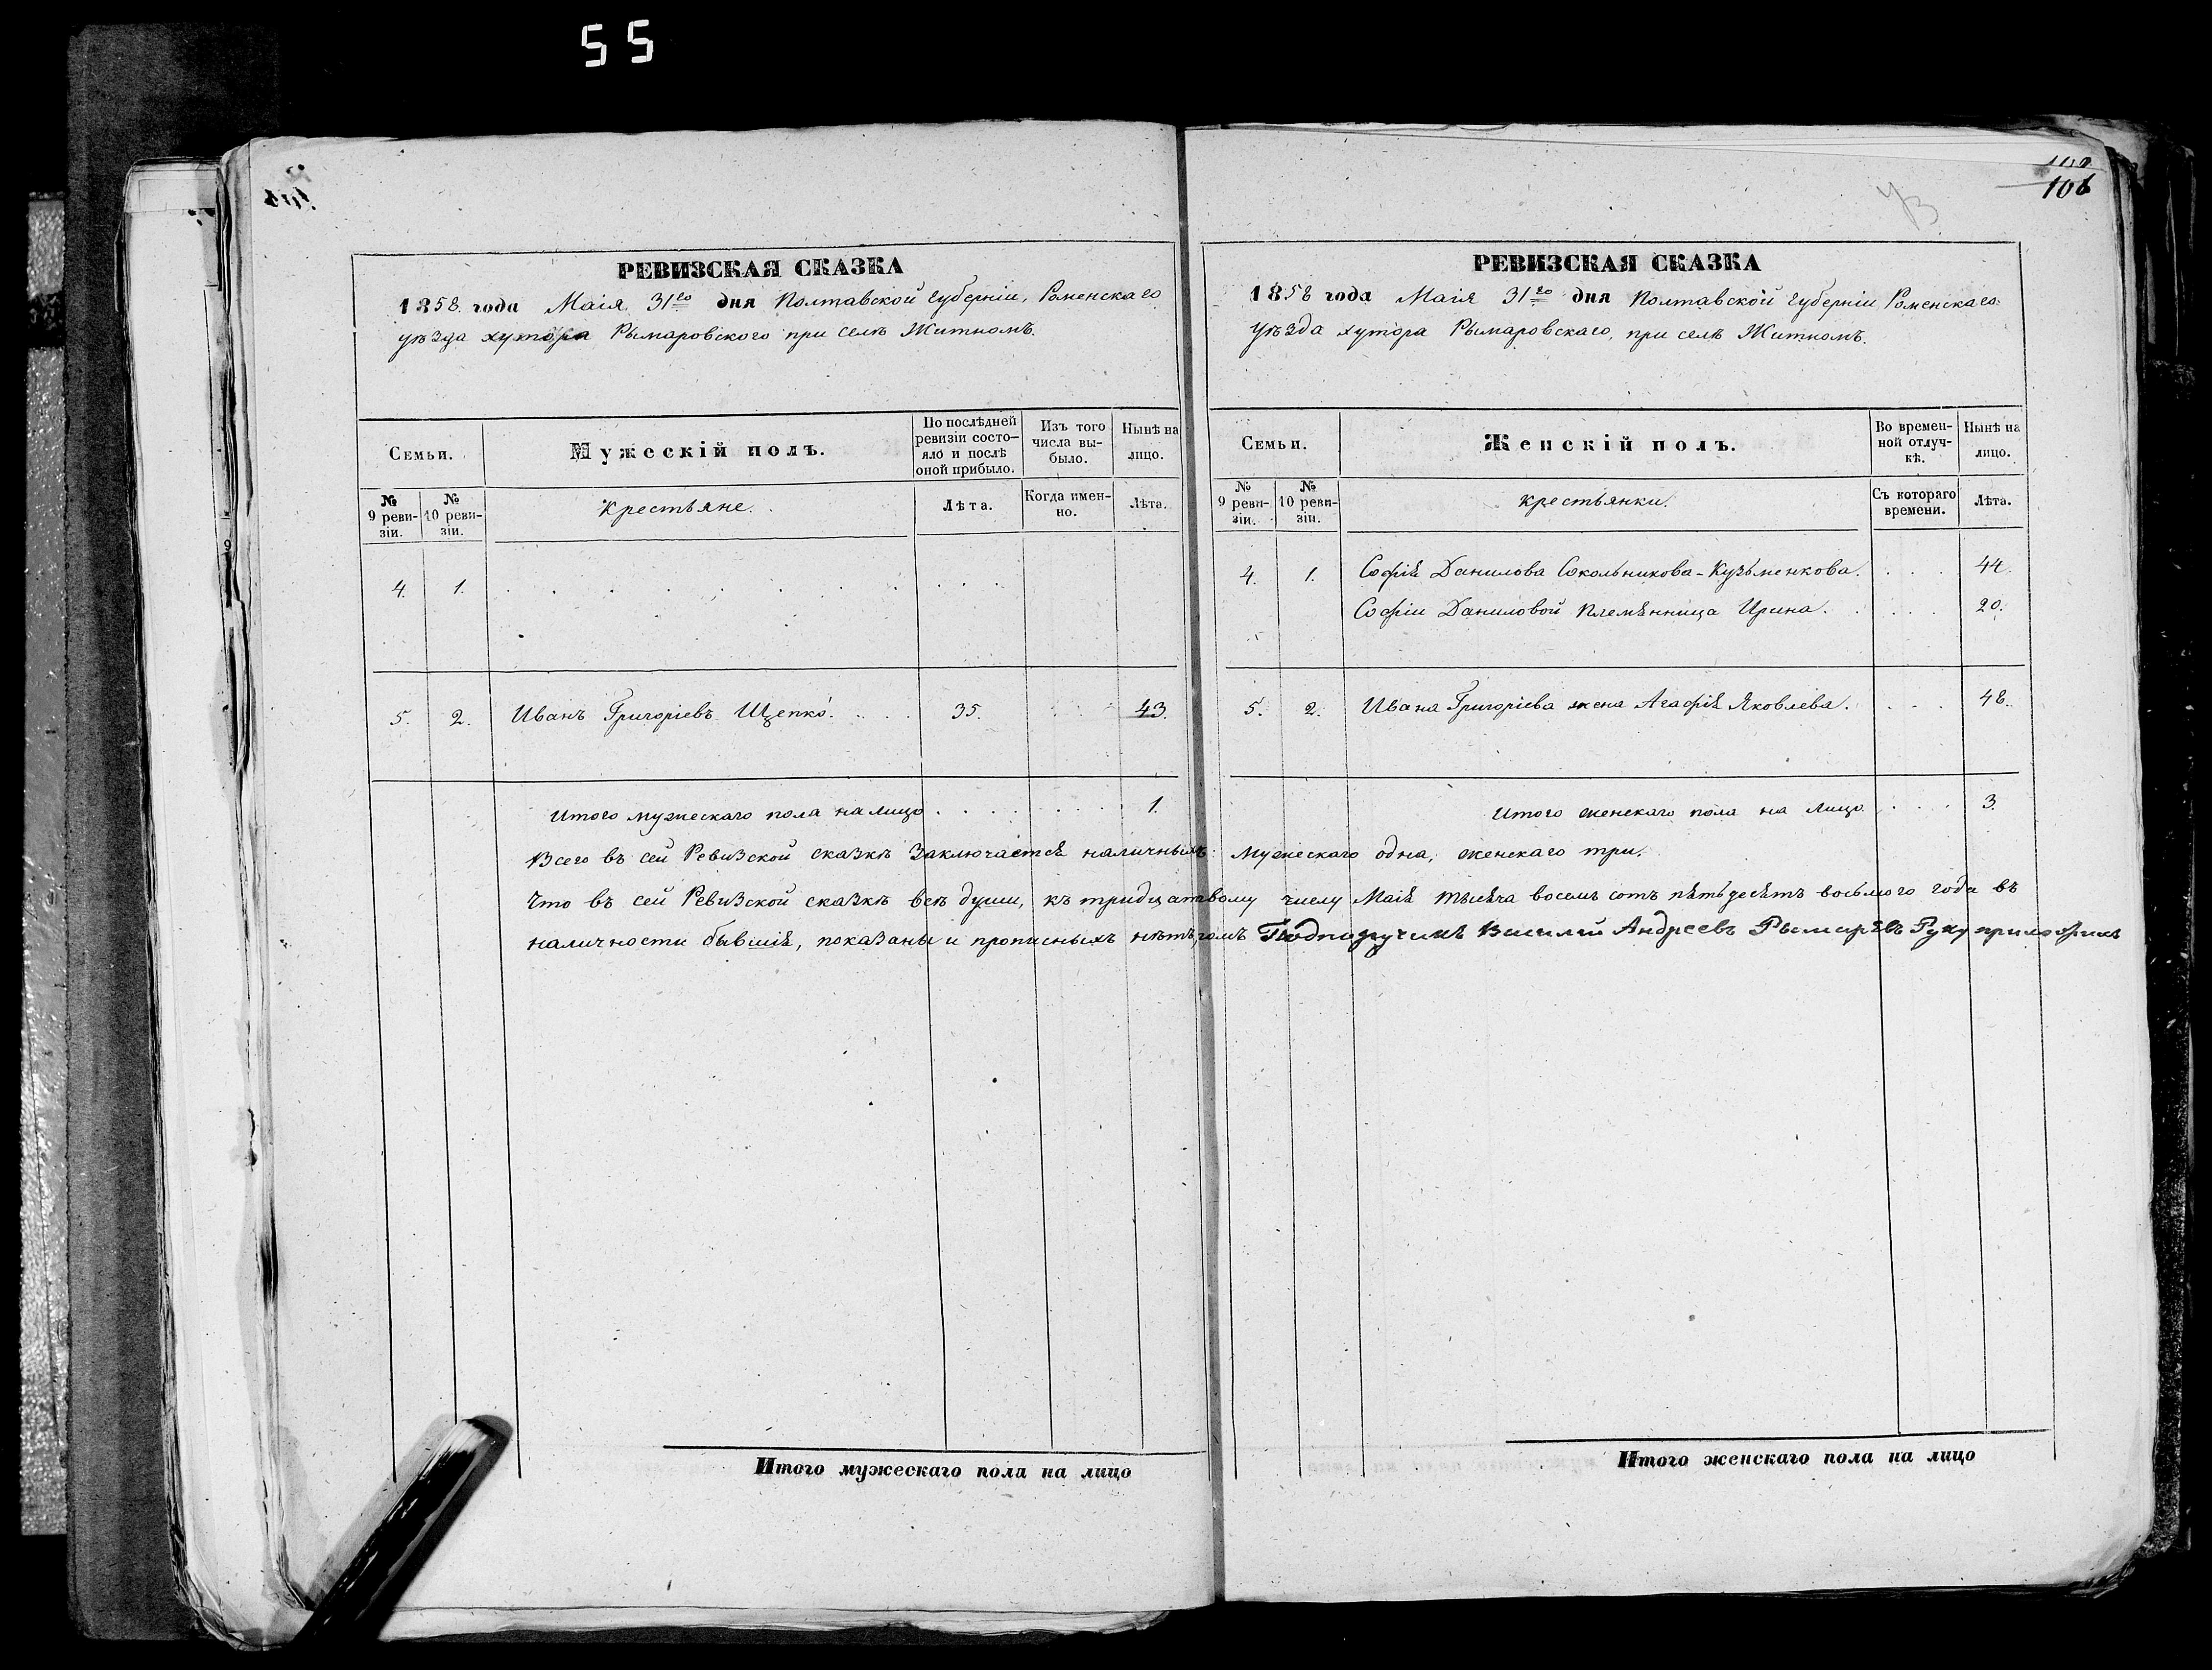 55
106
РЕВИЗСКАЯ СКАЗКА
1858. года Маія 31го дня Полтавской губерніи, Роменскаго
уѣзда хутора Рымаровского при селѣ Житномъ.
Семьи.
Мужескій полъ.
По послѣдней ревизіи состо-
яло и послѣ оной прибыло.
Изъ того числа вы-
было.
Нынѣ на лицо.
№ 9 реви-
зіи.
№ 10 реви-
зіи.
Крестьяне.
Лѣта.
Когда имен-
но.
Лѣта.
4. 1.
5. 2. Иванъ Григоріевъ Щепко. 35. 43.
Итого мужескаго пола на лицо 1.
РЕВИЗСКАЯ СКАЗКА
1858 года Маія 31го дня Полтавской губерніи Роменскаго
уѣзда хутора Рымаровскаго, при селѣ Житномъ.
Семьи.
Женскій полъ.
Во времен-
ной отлуч-
кѣ.
Нынѣ на лицо.
№ 9 реви-
зіи.
№ 10 реви-
зіи.
Крестьянки.
Съ котораго времени.
Лѣта.
4. 1. Софія Данилова Сокольникова-Кузьменкова. 44.
Софіи Даниловой племянница Ирина. 20.
5. 2. Ивана Григоріева жена Агафія Яковлева. 48.
Итого женскаго пола на лицо 3.
Всего въ сей Ревизской сказкѣ заключается наличныхъ мужескаго одна, женскаго три.
Что въ сей Ревизской сказкѣ всѣ души, къ числу Маія тысяча восемь сотъ пятьдесятъ восьмого года въ
наличности бывшія, показаны и прописныхъ нѣтъ, Подпоручикъ Василій Андреевъ Рымаревъ Руку приложилъ
Итого мужескаго пола на лицо
Итого женскаго пола на лицо